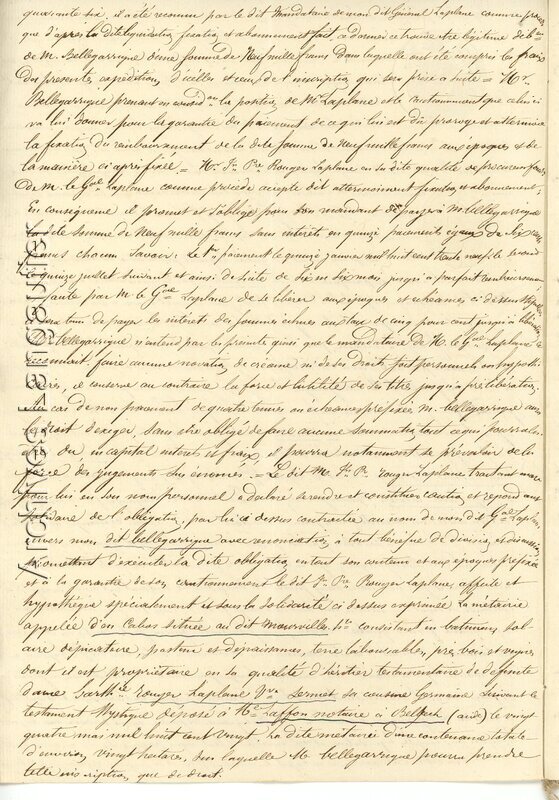 quarante six. il a été reconnu par le dit Mandataire de mon dit Général Laplane comme procède
que d'après la dite liquidation fixation et abonnement fait, a demeuré créancier légitime
de M. Bellegarrigue d'une somme de Neuf mille francs dans laquelle ont été compris les frais
des presentes, expédition, d'icelles et ceux de l'inscription qui sera prise à suite = Mr.
Bellegarrigue prenant en considon la position de Mr Laplane et le cautionnement que celui ci
va lui donner pour la garantie du paiement de ce qui lui est dû proroge et attermoie
la fixation du remboursement de la dite somme de neuf mille francs aux époques et de
la manière ci après fixée = Mr Jn Pre Rouger Laplane en sa dite qualité de procureur fondé
de M. le Gal Laplane comme procède accepte dit attermoiement fixation et abonnement,
En conséquence il promet et s'oblige pour son mandant de payer à M. bellegarrigue
la dite somme de Neuf mille francs sans intérêt en quinze paiements égaux de Six cents
francs chacun savoir: Le 1er paiement le quinze janvier mil huit cent trente neuf, le second
le quinze juillet suivant et ainsi de suite de six en six mois jusqu'à parfait remboursement
faute par M. le Gal Laplane de se libérer aux époques et echéances ci dessus
sera tenu de payer les intérêts des sommes échues au taux de cinq pour cent jusqu'à libération
M. Bellegarrigue n'entend par les présentes ainsi que le mandataire de M. le Gal Laplane le
reconnait faire aucune novation de créance ni de ses droits soit personnels ou hypothé-
caires, il conserve au contraire la force et l'utilité de ses titres jusqu'à pre libération,
Au cas de non paiement de quatre termes ou échéances préfixées M. bellegarrigue aura
le droit d'exiger, sans être obligé de faire aucune sommation, tout ce qui pourra lui
être dû, en capital intérêts et frais, il pourra notamment se prévaloir de la
force des jugements sus énoncés. = Le dit M. Jn Pre rouger Laplane traitant
pour lui en son nom personnel a déclaré se rendre et constituer caution et répondant
solidaire de l'obligation, par lui ci dessus contractée au nom de mon dit Gal Laplane
envers mon dit bellegarrigue avec renonciation, à tout bénéfice de division et discussion,
promettant d'executer la dite obligation en tout son contenu et aux époques préfixées
et à la garantie de son cautionnement le dit Jn Pre Rouger Laplane, affecte et
hypothèque spécialement et sous la solidarité ci dessus exprimée La métairie
appelée d'en Cabos située au dit Mourvilles hte consistant en batimens, sol
aire dépicatoire, patus et dépaissance, terre labourable, pre, bois et vignes
dont il est propriétaire en sa qualité d'héritier testamentaire de défunte
dame rouger Laplane Vve Sernet sa cousine Germaine suivant le
testament Mystique déposé à Me Laffon notaire à Belpech (aude) le vingt
quatre mai mil huit cent vingt. La dite métairie d'une contenance totale
d'environ vingt hectares, sur laquelle M. bellegarrigue pourra prendre
telle inscription que de droit.
Archives Lamousquier